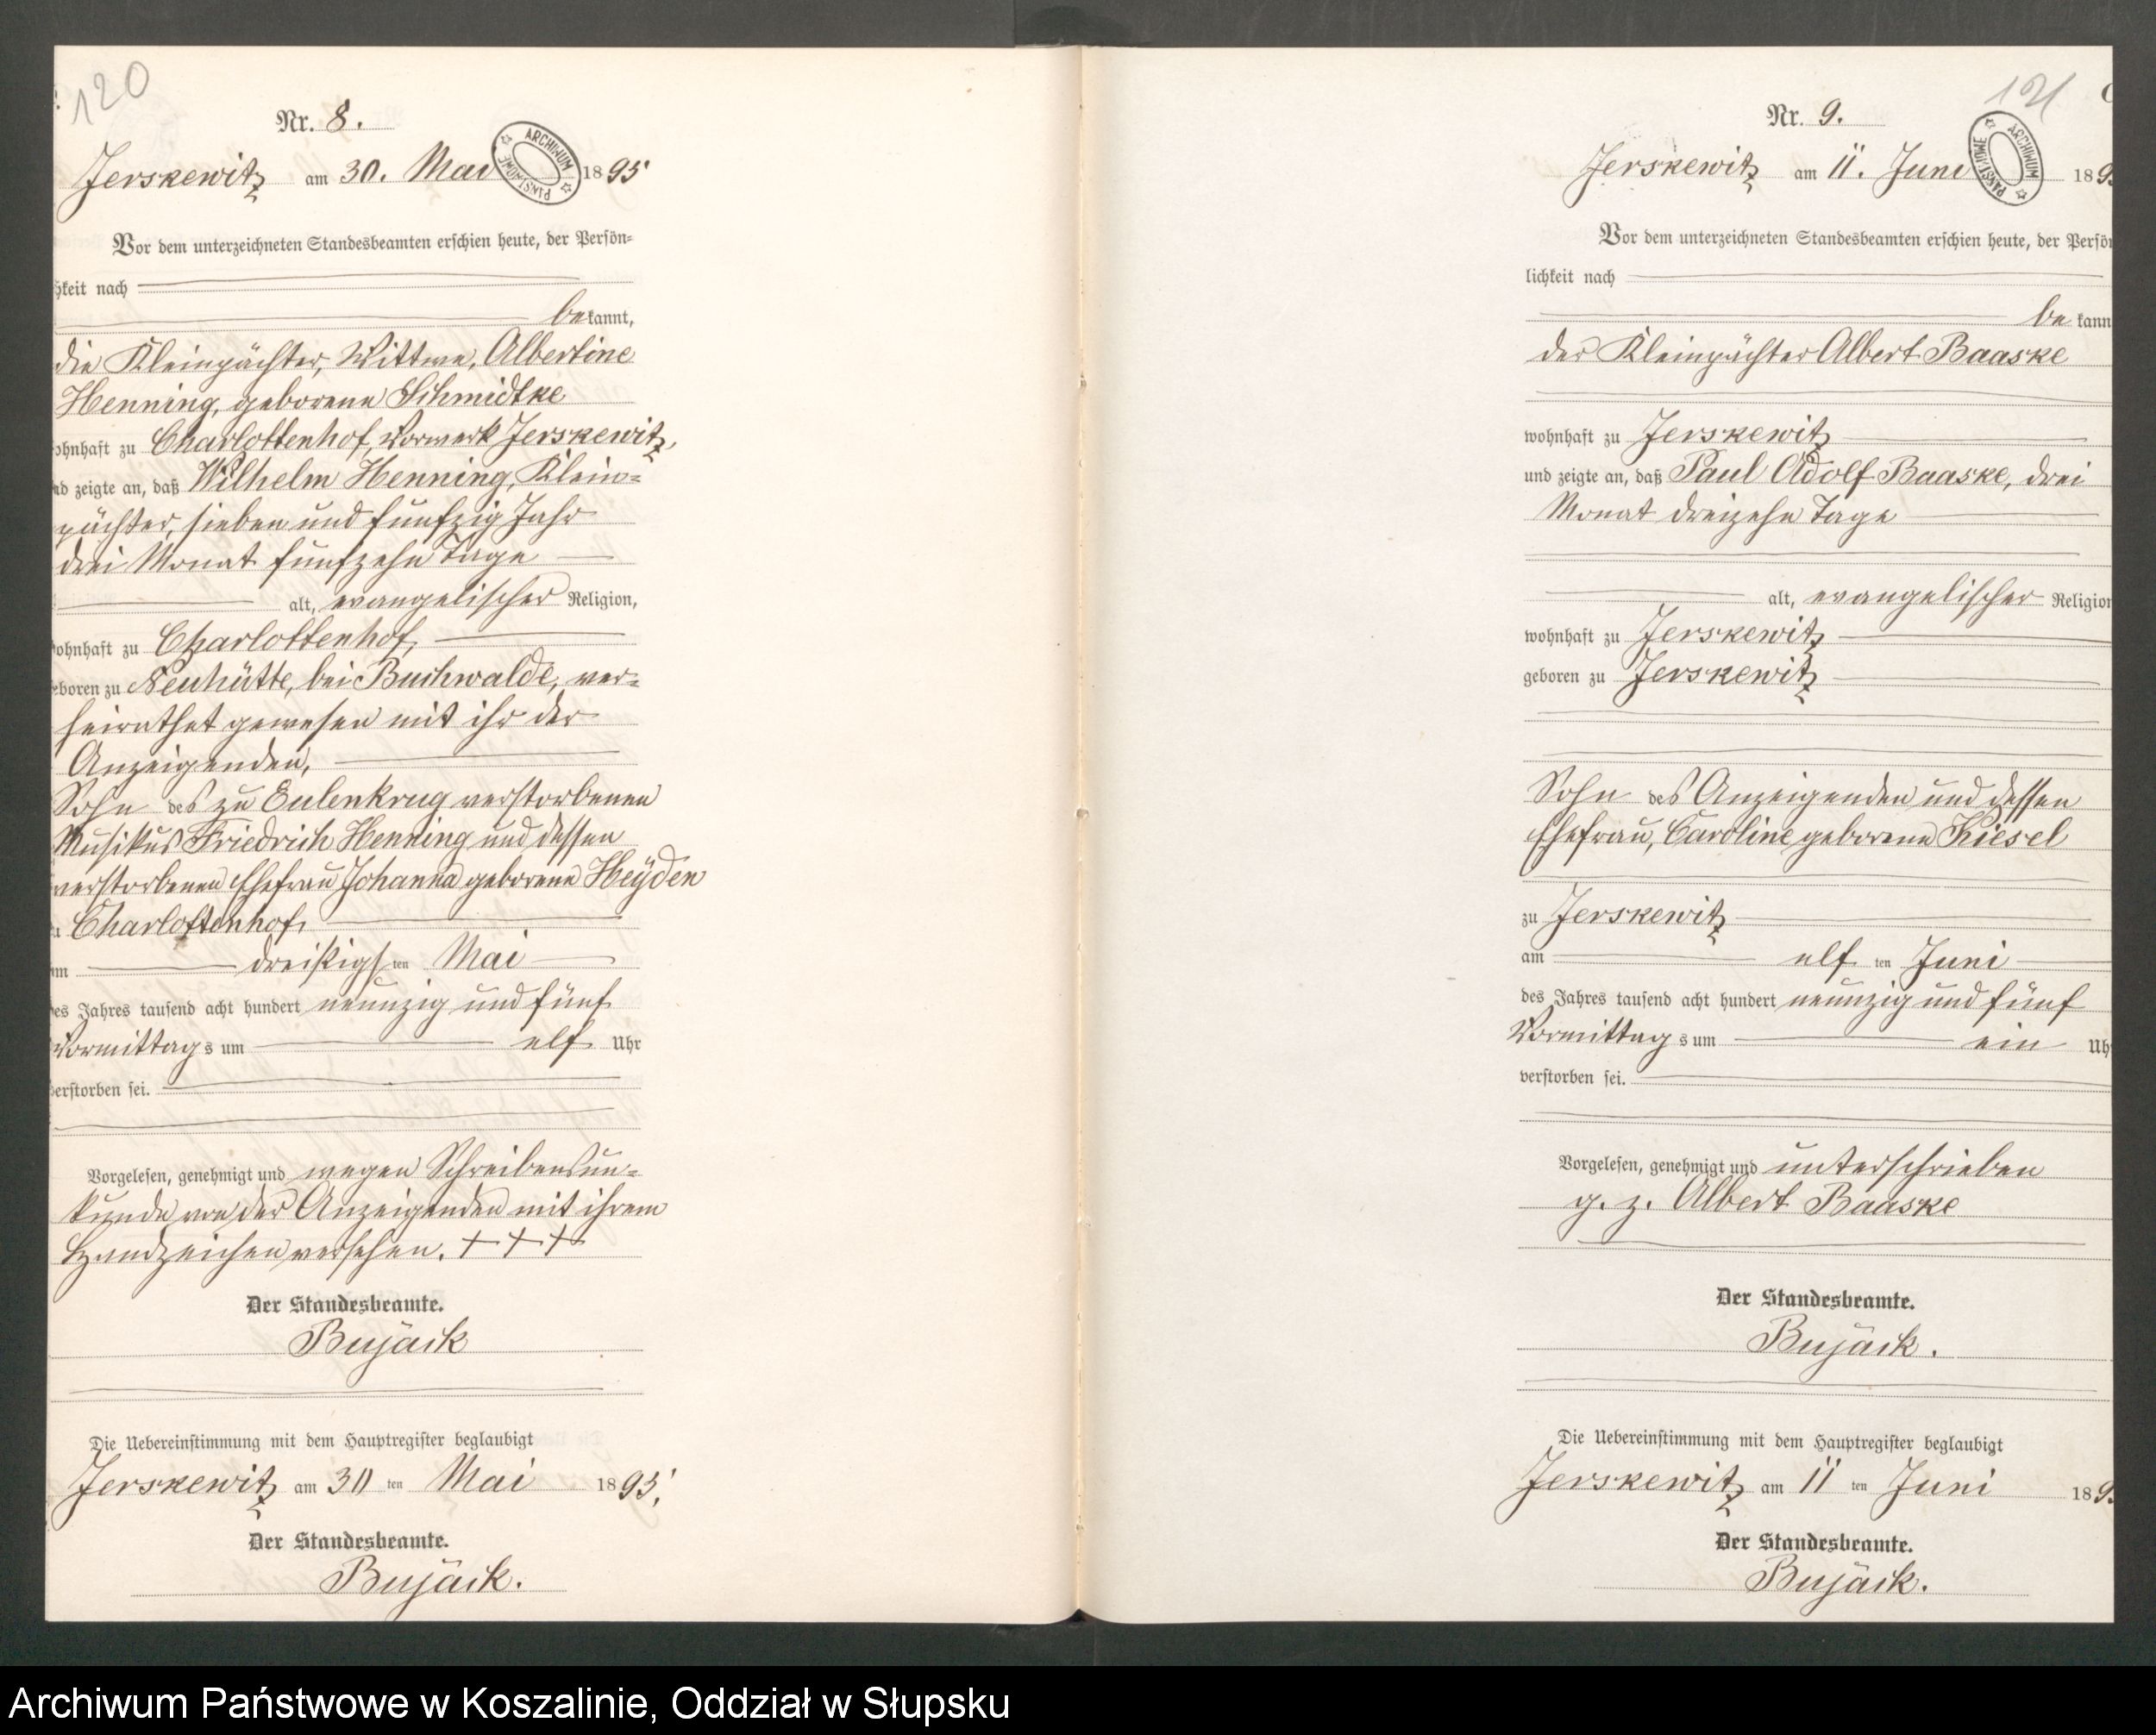 120
Nr. 8.
Jerskewitz am 30. Mai 1895
ARCHIWUM PAŃSTWOWE
Vor dem unterzeichneten Standesbeamten erschien heute, der Persön-
hkeit nach
bekannt,
die Kleinpächter, Wittwe, Albertine
Henning, geborene Schmidtke
ohnhaft zu Charlottenhof, Vorwerk Jerskewitz,
nd zeigte an, daß Wilhelm Henning, Klein-
pächter, sieben und funfzig Jahr
drei Monat funfzehn Tage
alt, evangelischer Religion,
ohnhaft zu Charlottenhof,
eboren zu Neuhütte, bei Buchwalde, ver-
heirathet gewesen mit ihr der
Anzeigenden,
Sohn des zu Eulenkrug verstorbenen
Musikus Friedrich Henning und dessen
verstorbenen Ehefrau Johanna geborene Heyden
u Charlottenhof,
m dreißigsten Mai
es Jahres tausend acht hundert neunzig und fünf
Vormittags um elf Uhr
erstorben sei.
Vorgelesen, genehmigt und wegen Schreibensun-
kunde von der Anzeigenden mit ihrem
Handzeichen versehen. + + +
Der Standesbeamte.
Bujack
Die Uebereinstimmung mit dem Hauptregister beglaubigt
Jerskewitz am 30 ten Mai 1895.
Der Standesbeamte.
Bujack.
121
Nr. 9.
Jerskewitz am 11. Juni 189
ARCHIWUM PAŃSTWOWE
Vor dem unterzeichneten Standesbeamten erschien heute, der Persön
lichkeit nach
be kann
der Kleinpächter Albert Baaske
wohnhaft zu Jerskewitz
und zeigte an, daß Paul Adolf Baaske, drei
Monat dreizehn Tage
alt, evangelischer Religion
wohnhaft zu Jerskewitz
geboren zu Jerskewitz
Sohn des Anzeigenden und dessen
Ehefrau, Caroline geborene Kiesel
zu Jerskewitz
am elf ten Juni
des Jahres tausend acht hundert neunzig und fünf
Vormittags um ein Uh
verstorben sei.
Vorgelesen, genehmigt und unterschrieben
g. z. Albert Baaske
Der Standesbeamte.
Bujack.
Die Uebereinstimmung mit dem Hauptregister beglaubigt
Jerskewitz am 11 ten Juni 189
Der Standesbeamte.
Bujack.
Archiwum Państwowe w Koszalinie, Oddział w Słupsku